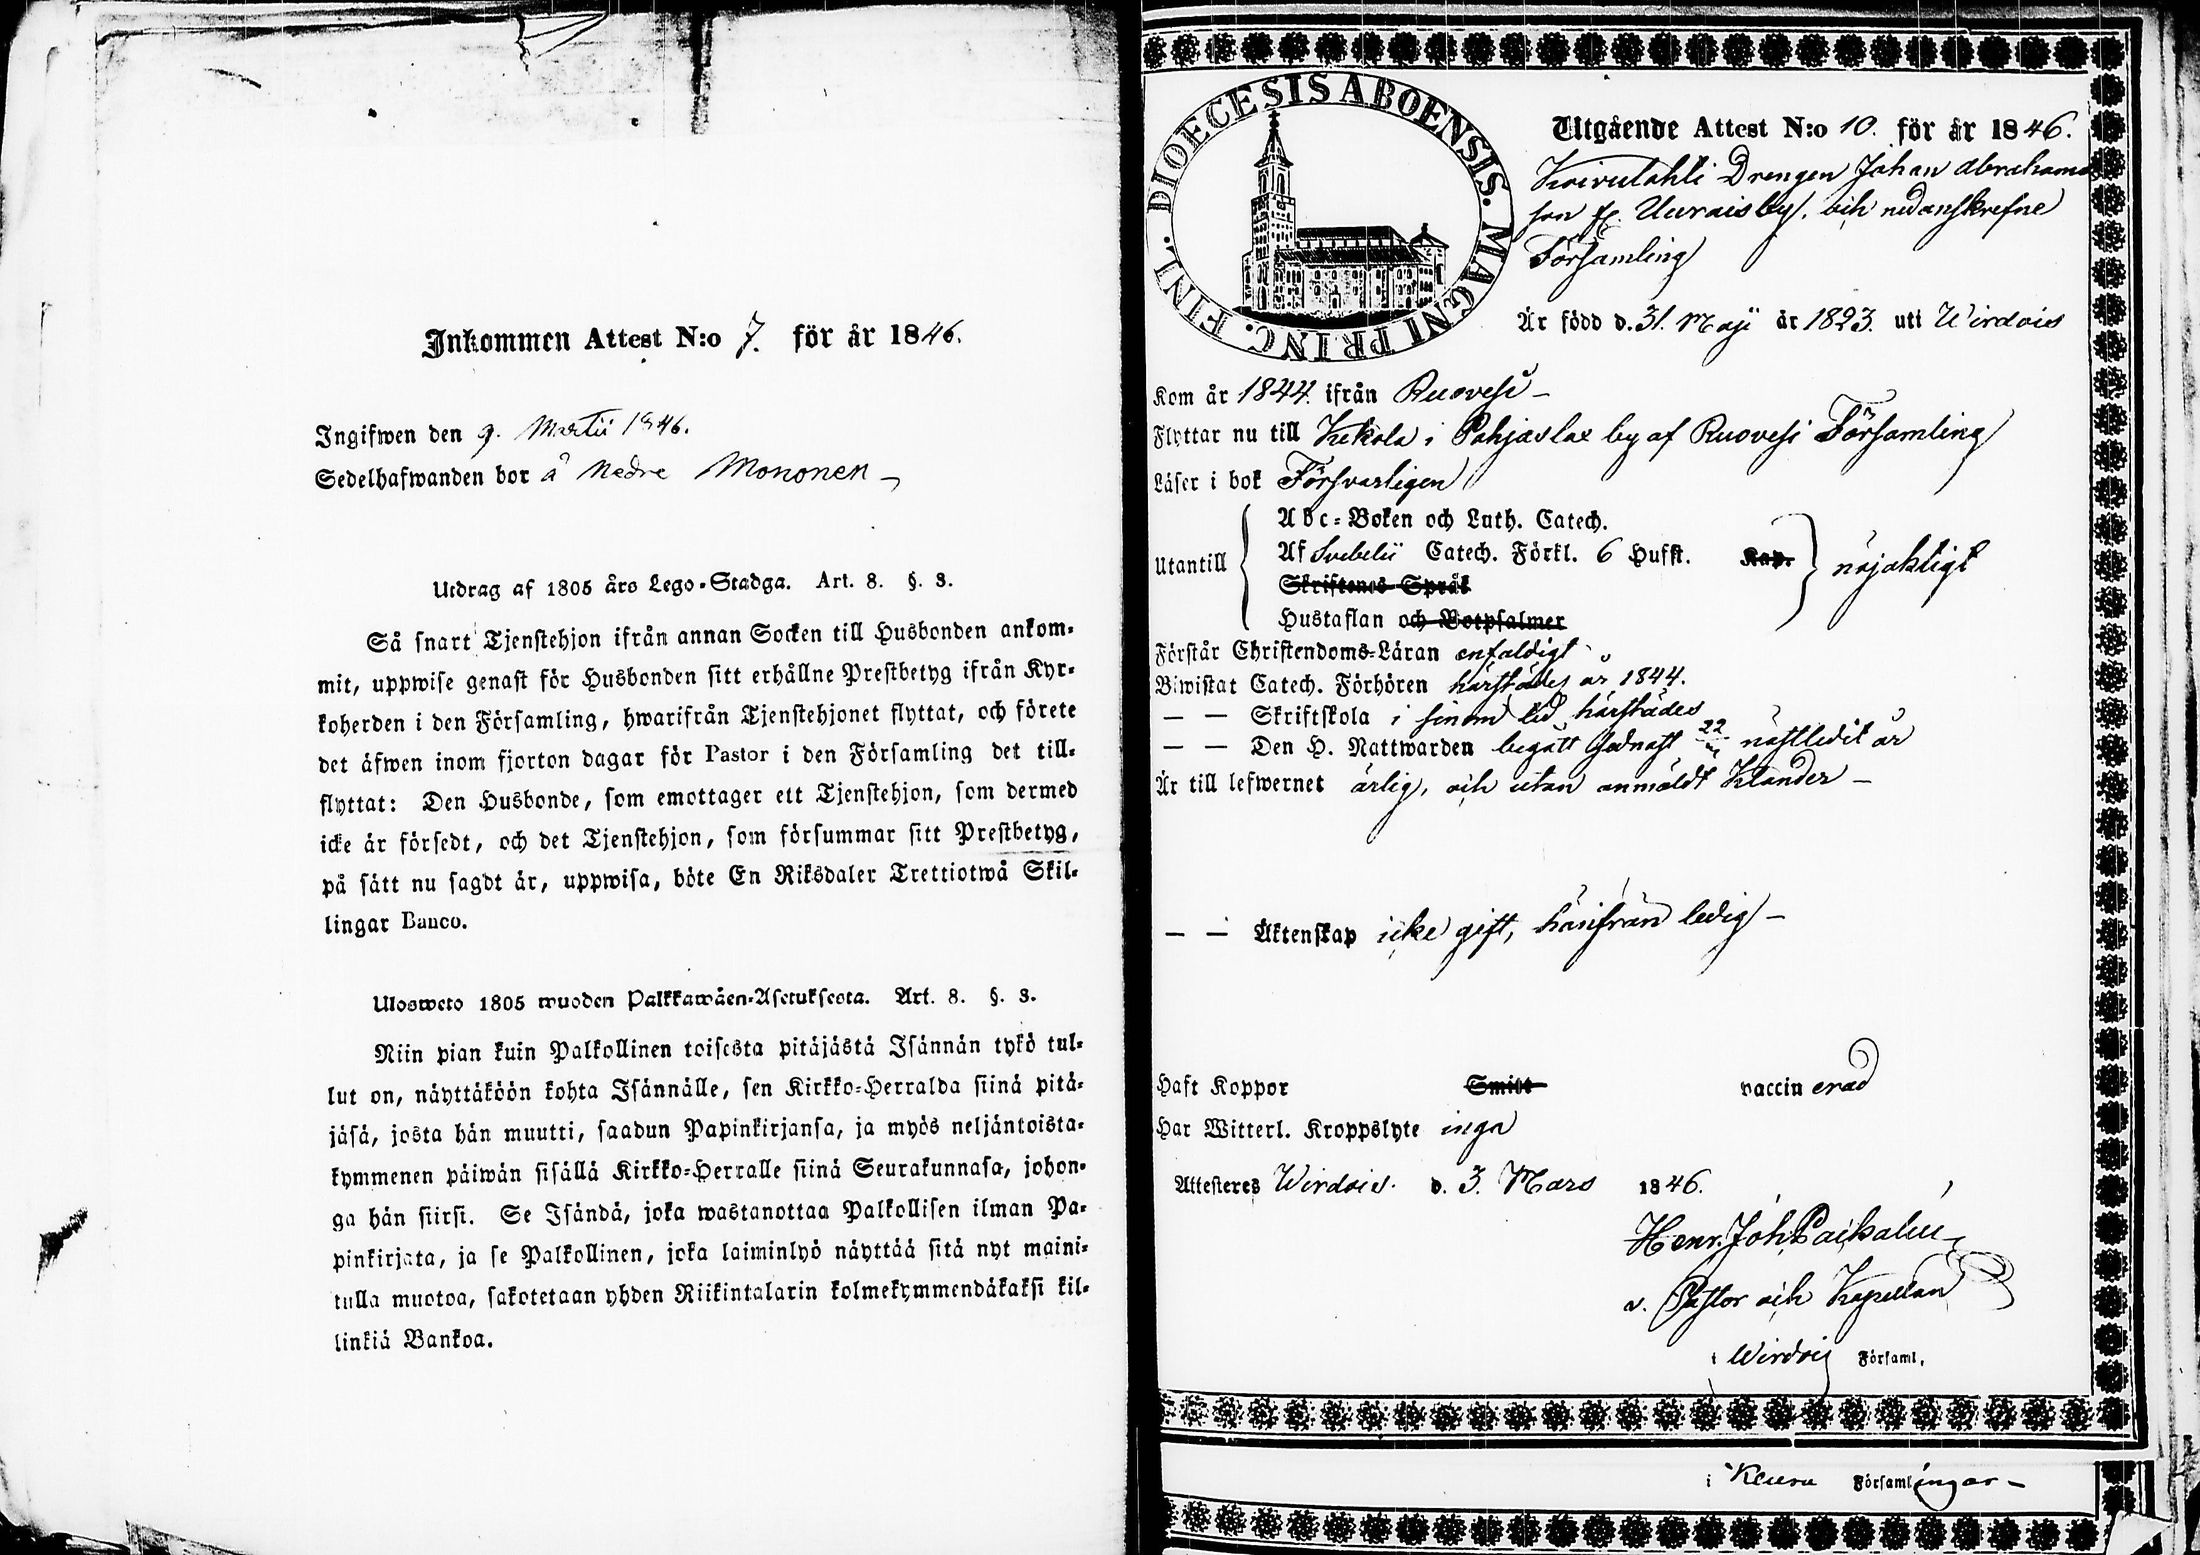 Inkommen Attest N:o 7. för år 1846.
Ingifwen den 9. Martii 1846.
Sedelhafwanden bor å Nedre Mononen
Utdrag af 1805 års Lego-Stadga. Art. 8. §. 3.
Så snart Tjenstehjon ifrån annan Socken till Husbonden ankom-
mit, uppwise genast för Husbonden sitt erhållne Prestbetyg ifrån Kyr-
koherden i den Församling, hwarifrån Tjenstehjonet flyttat, och förete
det äfwen inom fjorton dagar för Pastor i den Församling det till-
flyttat: Den Husbonde, som emottager ett Tjenstehjon, som dermed
icke är försedt, och det Tjenstehjon, som försummar sitt Prestbetyg,
på sätt nu sagdt är, uppwisa, böte En Riksdaler Trettiotwå Skil-
lingar Banco.
Ulosweto 1805 wuoden Palkkawäen-Asetuksesta. Art. 8. §. 3.
Niin pian kuin Palkollinen toisesta pitäjästä Isännän tykö tul-
lut on, näyttäköön kohta Isännälle, sen Kirkko-Herralda siinä pitä-
jäsä, josta hän muutti, saadun Papinkirjansa, ja myös neljäntoista-
kymmenen päiwän sisällä Kirkko-Herralle siinä Seurakunnasa, johon-
ga hän siirsi. Se Isändä, joka wastanottaa Palkollisen ilman Pa-
pinkirjata, ja se Palkollinen, joka laiminlyö näyttää sitä nyt maini-
tulla muotoa, sakotetaan yhden Riikintalarin kolmekymmendäkaksi kil-
linkiä Bankoa.
DIOECESIS ABOENSIS. MAGNI PRINC. FINL.
Utgående Attest N:o 10. för år 1846.
Koivulahti Drengen Johan Abrahams
son fr. Uuraisby, och nedanskrefne
Församling
Är född d. 31. Maji år 1823. uti Wirdois
Kom år 1844. ifrån Ruovesi
Flyttar nu till Kekola i Pohjaslax by af Ruovesi Församling
Läser i bok Försvarligen
Utantill
Abc-Boken och Luth. Catech.
Af Svebelii Catech. Förkl. 6 Hufst. Kap.
Skriftenes Språk
Hustaflan och Botpsalmer
nöjaktigt
Förstår Christendoms-Läran enfaldigt
Biwistat Catech. Förhören härstädes år 1844.
— — Skriftskola i sinom tid härstädes
— — Den H. Nattwarden begått sednast 22 nästledit år
Är till lefwernet ärlig, och utan anmäldt Klander
— — Äktenskap icke gift, härifrån ledig
Haft Koppor Smitt vaccinerad
Har Witterl. Kroppslyte inga
Attesteres Wirdois. d. 3. Mars 1846.
Henr. Joh.
v. Pastor och Kapellan
i Wirdois Församl.
i Keuru Församlingar